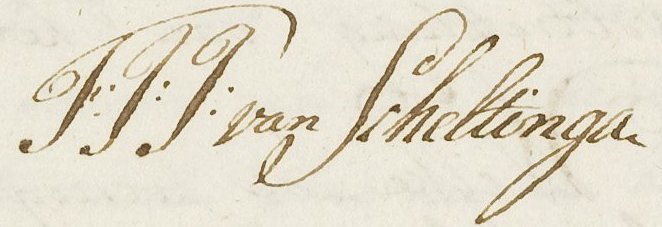 F: J: J: van Scheltinga